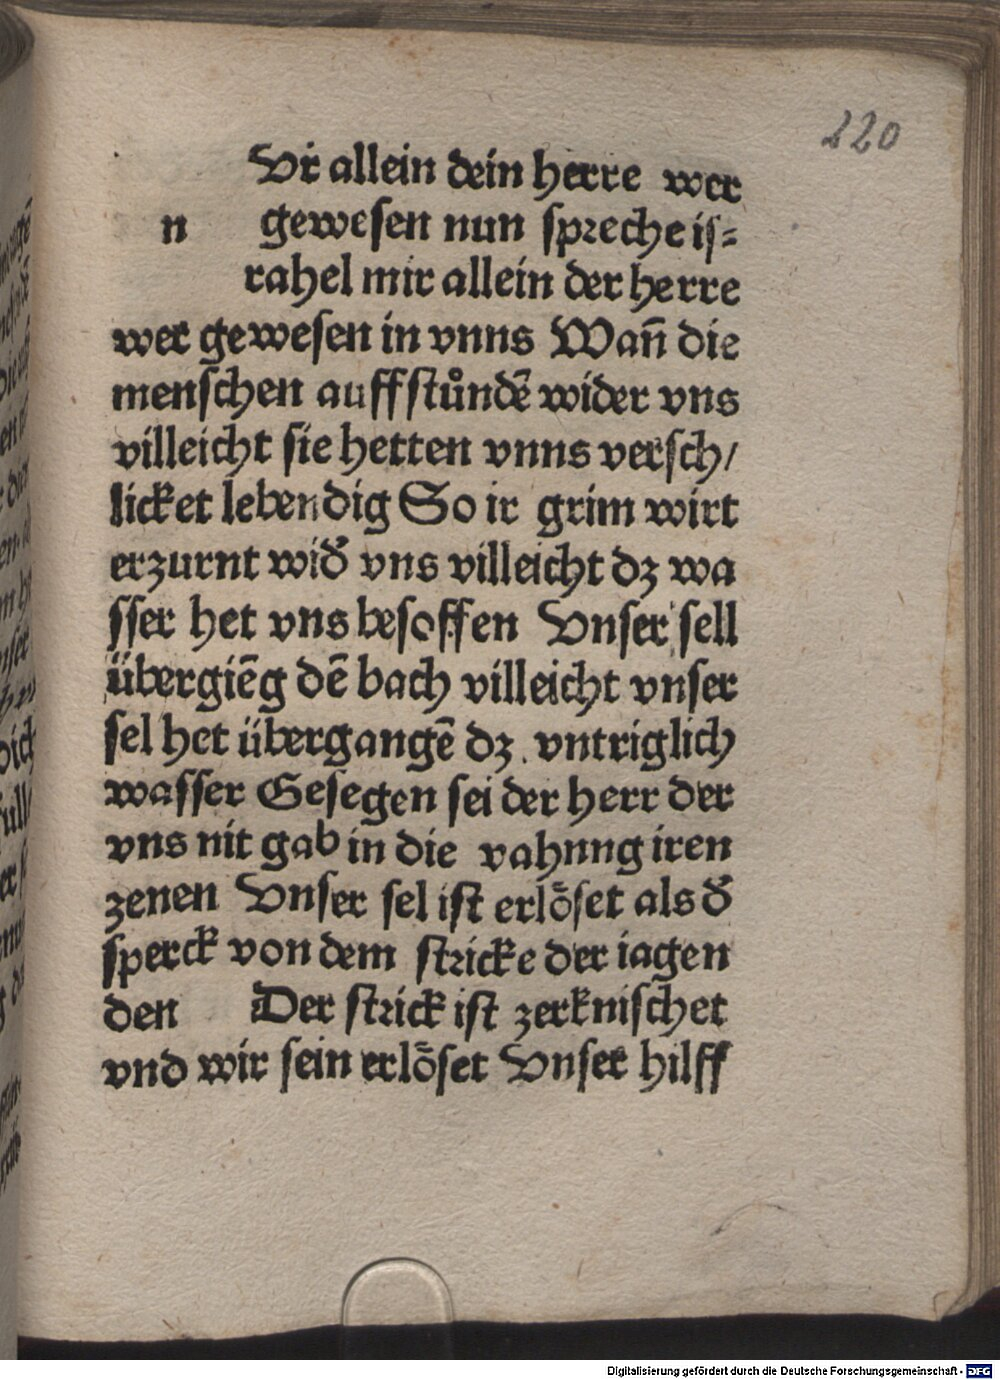 220
Vr allein dein herre wer
n gewesen nun spreche is⸗
rahel mir allein der herre
wer gewesen in vnns Wañ die
menschen auffstůndē wider vns
villeicht sie hetten vnns versch/
licket lebendig So ir grim wirt
erzurnt wid̕ vns villeicht dz wa
sser het vns besoffen Vnser sell
übergiēg dē bach villeicht vnser
sel het übergangē dz vntriglich
wasser Gesegen sei der herr der
vns nit gab in die vahnng iren
zenen Vnser sel ist erlöset als d̕
sperck von dem stricke der iagen
den Der strick ist zerknischet
vnd wir sein erlöset Vnser hilff
Digitalisierung gefördert durch die Deutsche Forschungsgemeinschaft - DFG